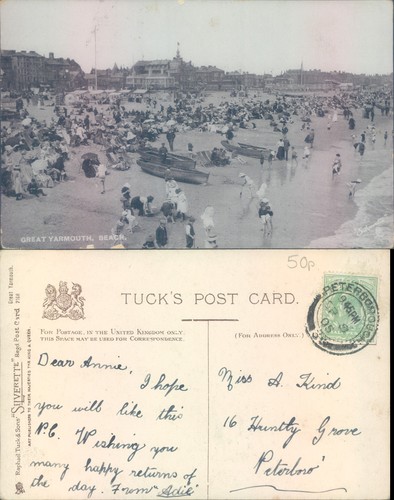 GREAT YARMOUTH, BEACH.
50p
Great Yarmouth.
Raphael Tuck & Sons' "SILVERETTE" Regd Post Card
ART PUBLISHERS TO THEIR MAJESTIES THE KING & QUEEN.
TUCK'S POST CARD.
FOR POSTAGE, IN THE UNITED KINGDOM ONLY,
THIS SPACE MAY BE USED FOR CORRESPONDENCE
(FOR ADDRESS ONLY.)
PETERBOROUGH
Dear Annie,
I hope
you will like this
P.C. Wishing you
many happy returns of
the day. From "Adie"
Miss A. Kind
16 Huntly Grove
Peterboro'